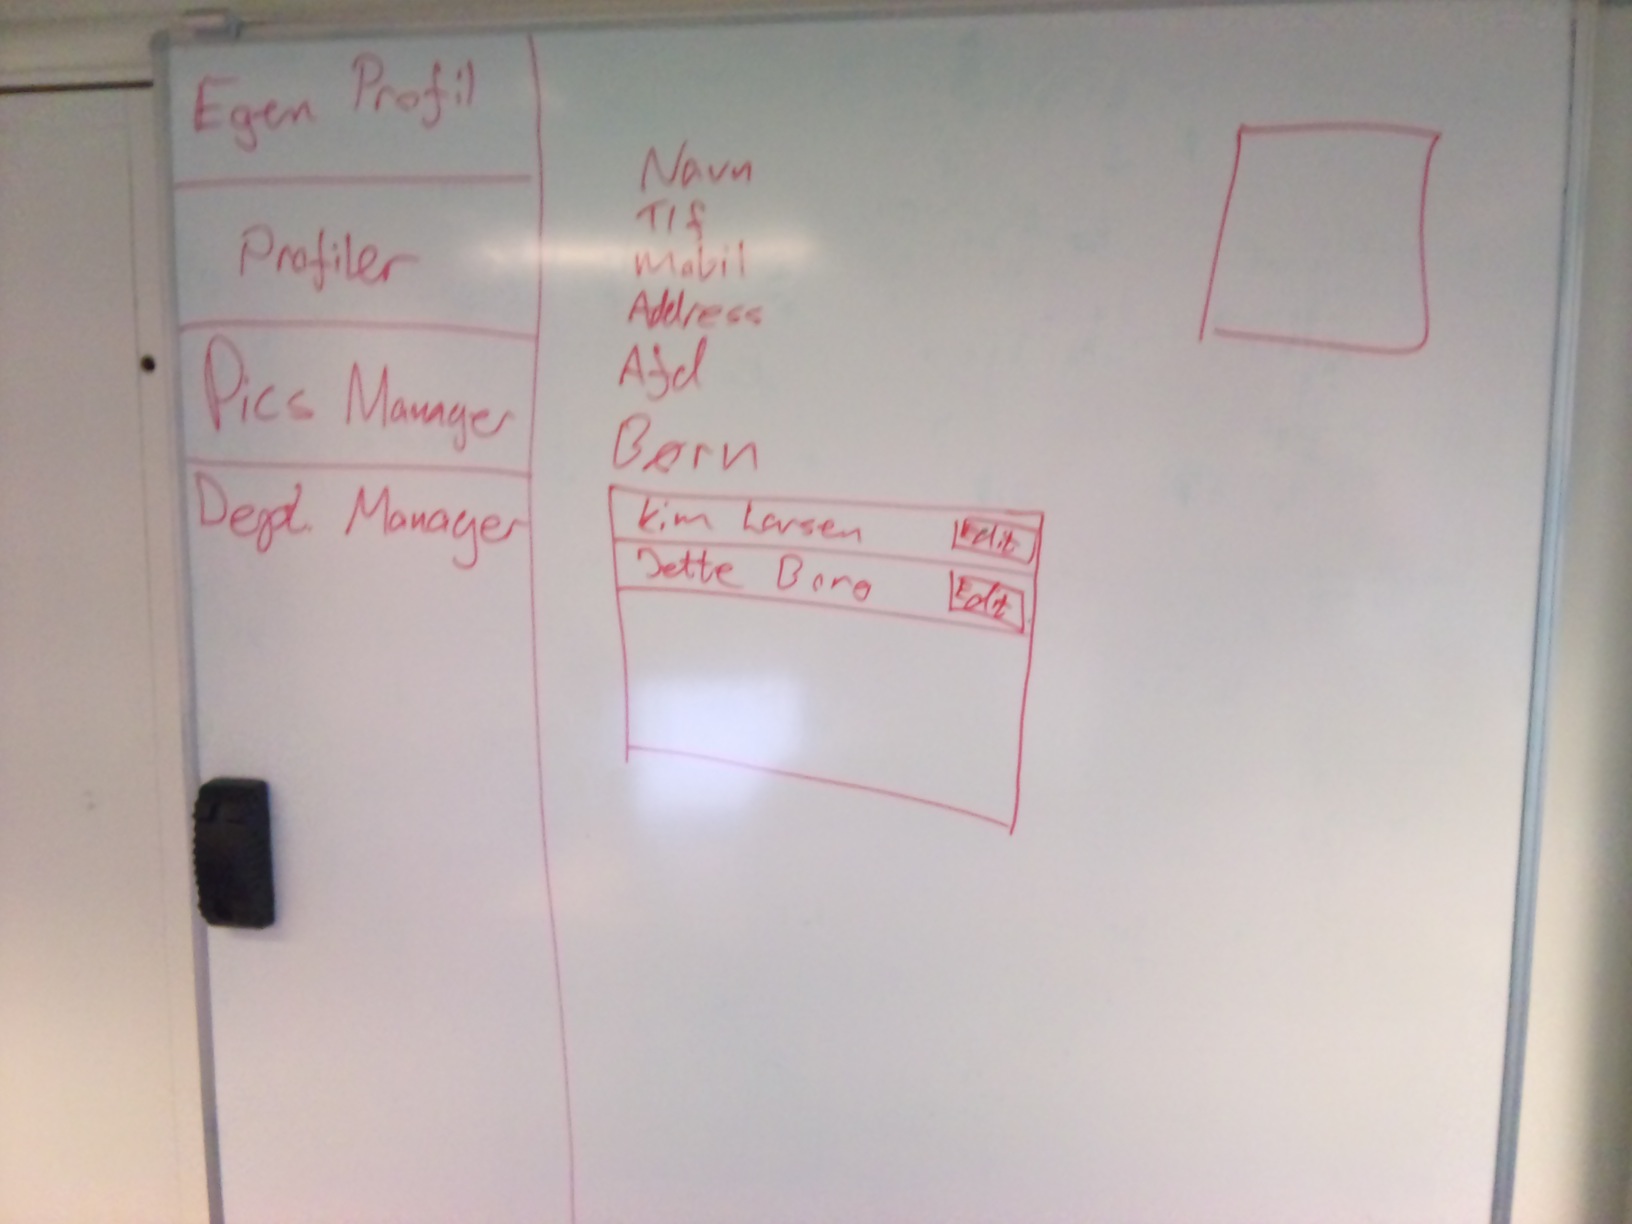 Egen Profil
Profiler
Pics Manager
Dept. Manager
Navn
Tlf
Mobil
Address
Afd
Børn
Kim Larsen Edit
Jette Borg Edit